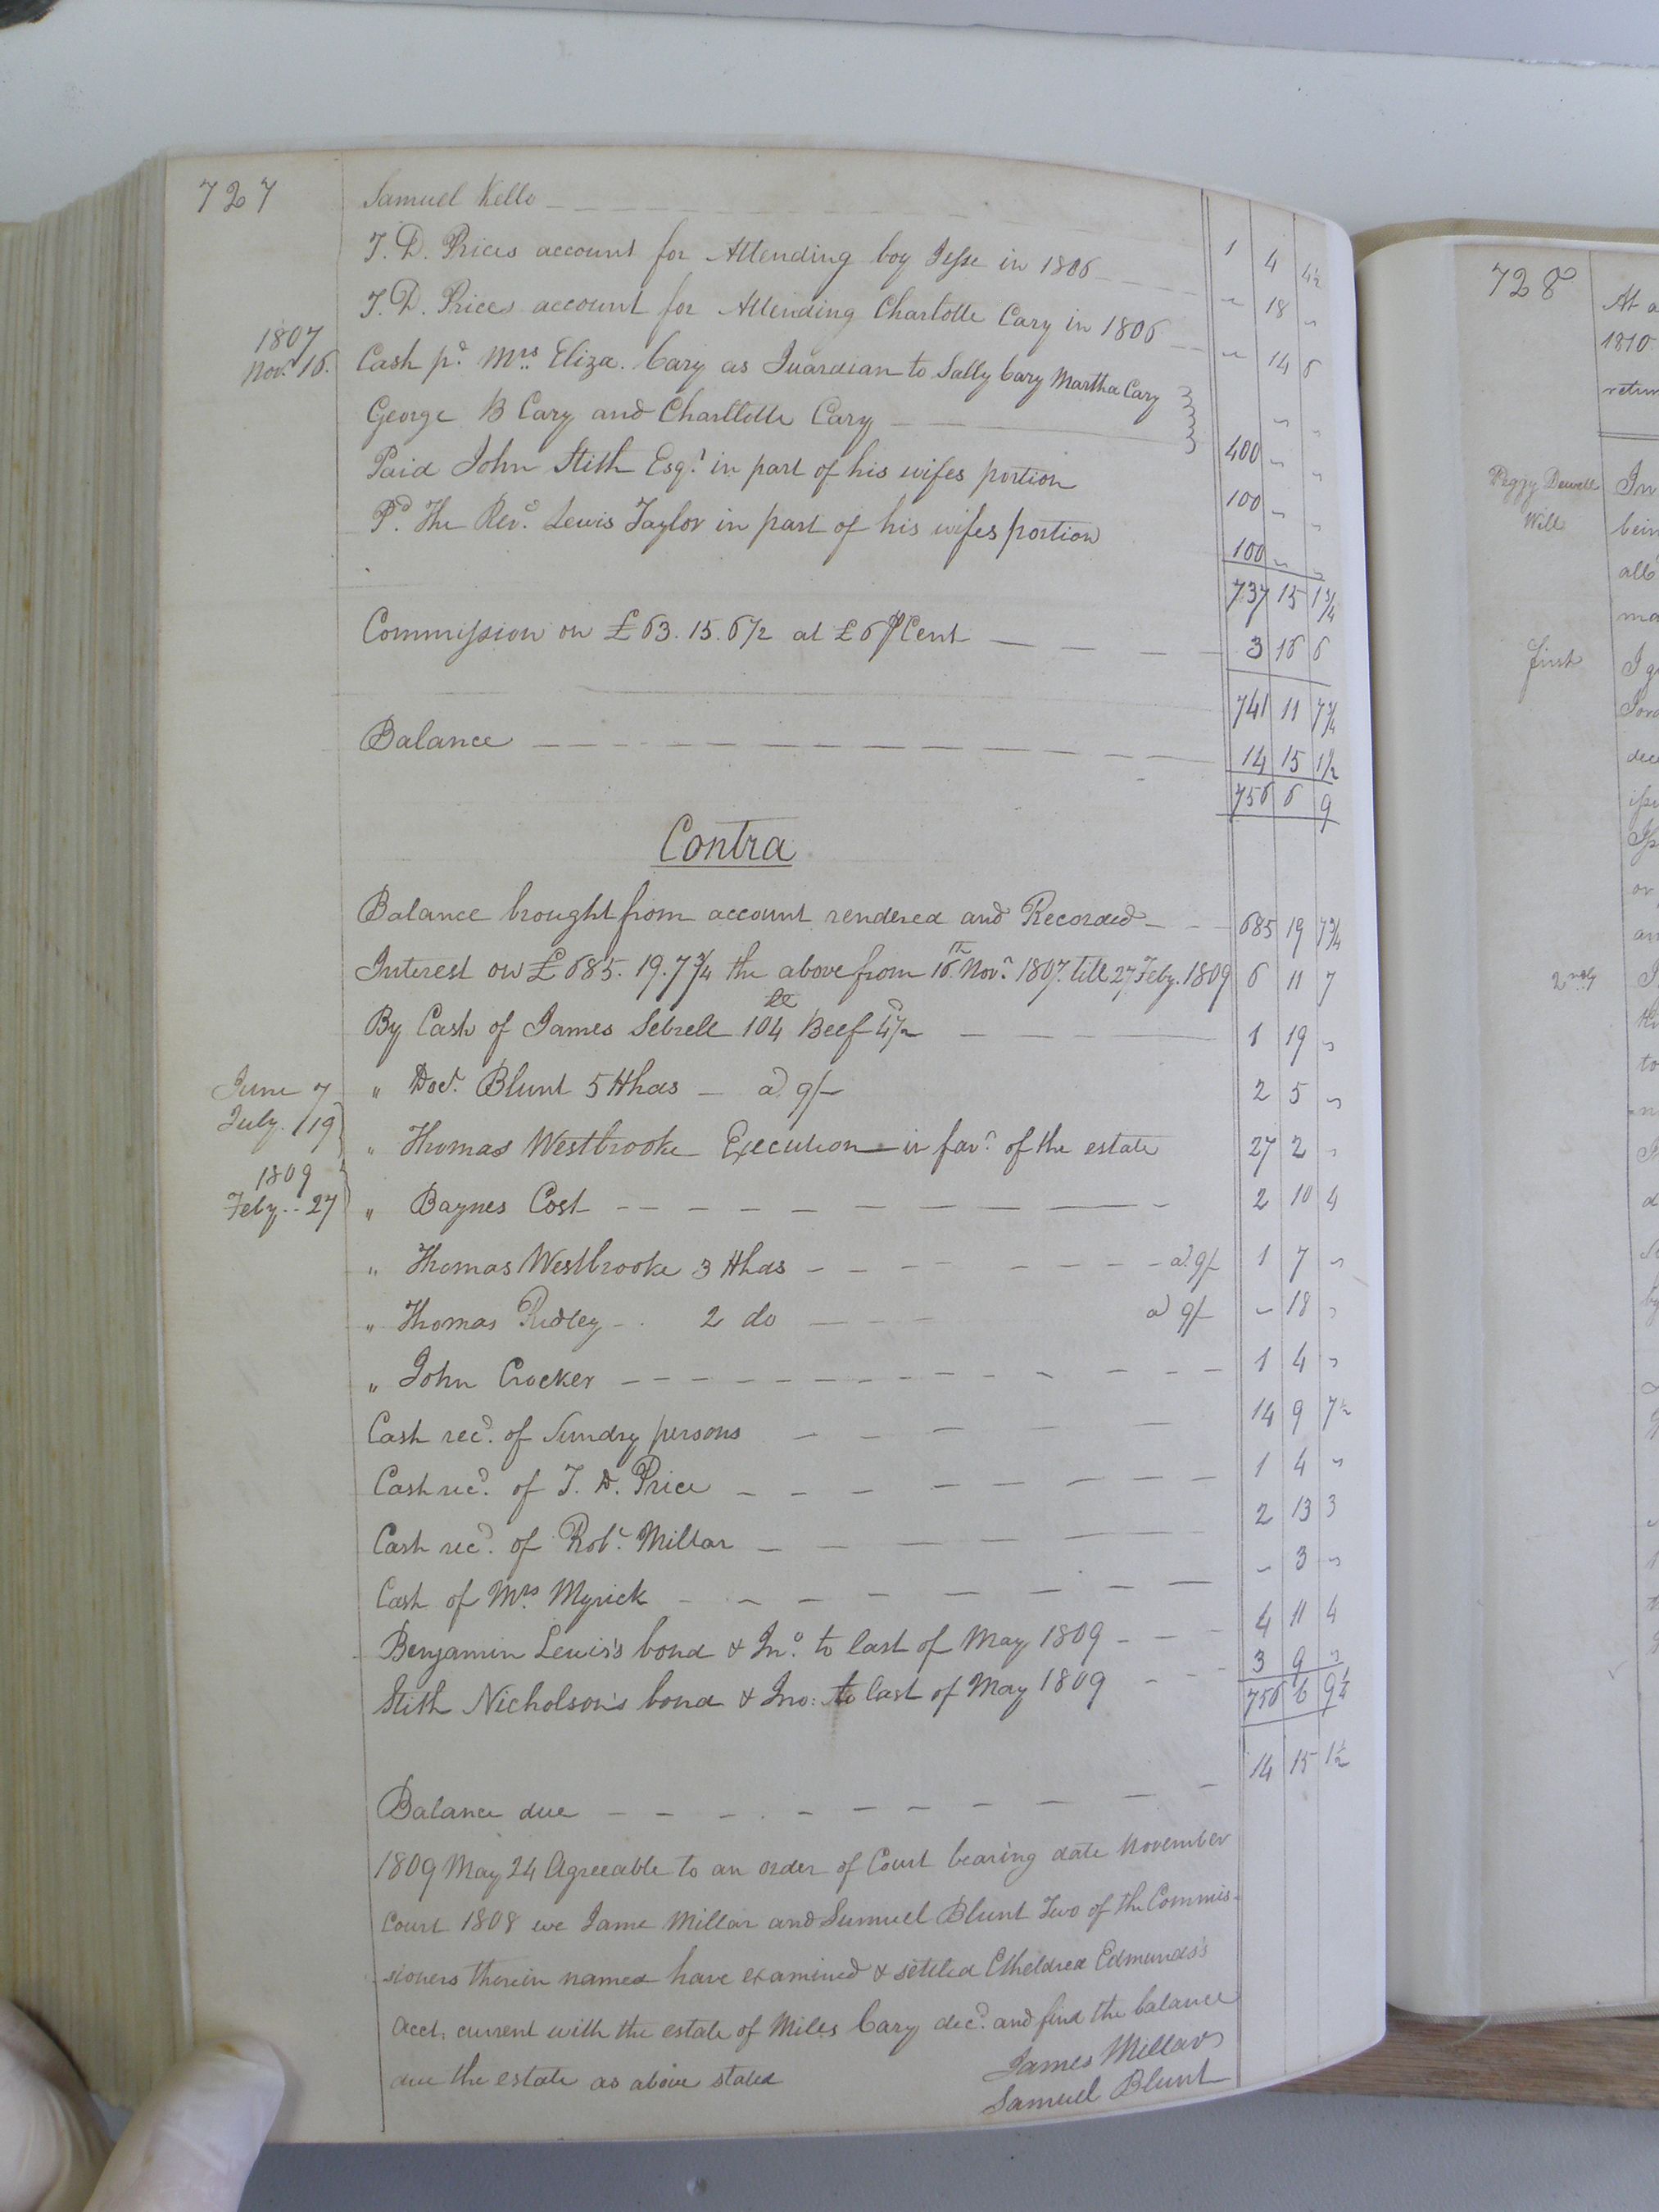 727
Samuel Kello 1 4 4½
T. D. Prices account for Attending boy Jesse in 1806 " 18 "
T. D. Prices account for Attending Charlotte Cary in 1806 " 14 6
1807
Nov. 16. Cash pd. Mrs. Eliza. Cary as Guardian to Sally Cary Martha Cary
George B Cary and Charllotte Cary 400 " "
Paid John Stith Esqr. in part of his wifes portion 100 " "
Pd. The Revd. Lewis Taylor in part of his wifes portion 100 " "
737 15 1¾
Commission on £63.15.6½ at £6 ⅌ Cent 3 16 6
741 11 7¾
Balance 14 15 1½
756 6 9
Contra
Balance brought from account rendered and Recorded 685 19 7¾
Interest on £685.19.7¾ the above from 16th Novr. 1807 till 27 Feby. 1809 6 11 7
By Cash of James Sebrell 104 lb Beef 4½d 1 19 "
June 7 " Doct. Blunt 5 Hhds a 9/- 2 5 "
July 19 " Thomas Westbrooke Execution in favr. of the estate 27 2 "
1809
Feby. 27 " Baynes Cost 2 10 4
" Thomas Westbrooke 3 Hhds a 9/- 1 7 "
" Thomas Ridley 2 do a 9/- " 18 "
" John Crocker 1 4 "
Cash recd. of Sundry persons 14 9 7½
Cash recd. of T. D. Price 1 4 "
Cash recd. of Robt. Millar 2 13 3
Cash of Mrs. Myrick " 3 "
Benjamin Lewis's bond & Ino. to last of May 1809 4 11 4
Stith Nicholson's bond & Ino: to last of May 1809 3 9 "
756 6 9¼
Balance due 14 15 1½
1809 May 24 Agreeable to an order of Court bearing date November
Court 1808 we Jame Millar and Samuel Blunt Two of the Commis-
sioners therein named have examined & settled Etheldred Edmunds's
Acct. current with the estate of Miles Cary decd. and find the balance
due the estate as above stated
James Millar
Samuel Blunt
728
At a
1810
return
Peggy Dewell
Will
In
bein
all
ma
first
I g
dec
or
an
2ndly
to